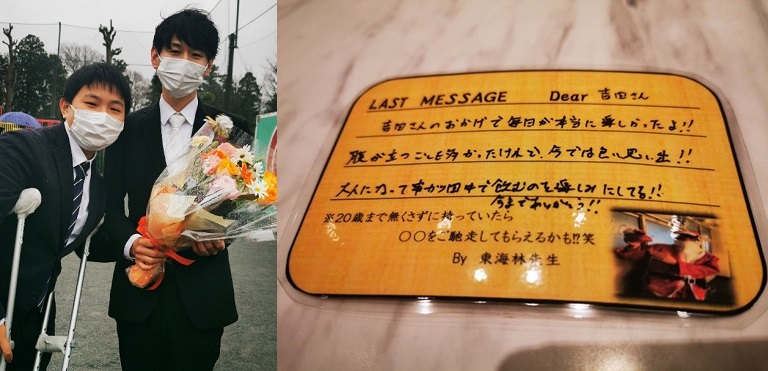 LAST MESSAGE Dear 吉田さん
吉田さんのおかげで毎日が本当に楽しかったよ!!
腹が立つことも多かったけんど、今では良い思い出!!
大人になって串カツ田中で飲むのを楽しみにしてる!!
今までありがとう!!
※20歳まで無くさずに持っていたら
〇〇をご馳走してもらえるかも!?笑
By 東海林先生